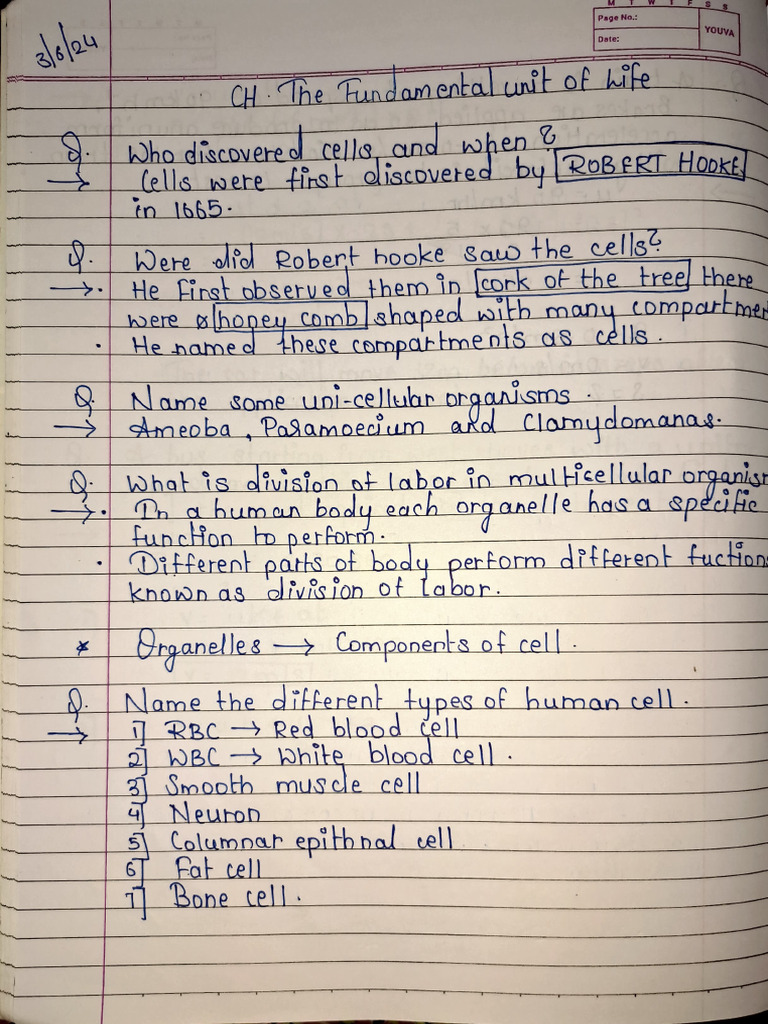 M T W T F S S
Page No.:
YOUVA
Date:
3/6/24
CH. The Fundamental unit of Life
Q. Who discovered cells, and when?
→ Cells were first discovered by ROBERT HOOKE
in 1665.
Q. Were did Robert hooke saw the cells?
→ • He first observed them in cork of the tree there
were honey comb shaped with many compartmen
• He named these compartments as cells.
Q. Name some uni-cellular organisms.
→ Ameoba, Paramoecium and Clamydomanas.
Q. What is division of labor in multicellular organism
→ • In a human body each organelle has a specific
function to perform.
• Different parts of body perform different fuctions
known as division of labor.
* Organelles → Components of cell.
Q. Name the different types of human cell.
→ 1] RBC → Red blood cell
2] WBC → White blood cell.
3] Smooth muscle cell
4] Neuron
5] Columnar epithnal cell
6] Fat cell
7] Bone cell.